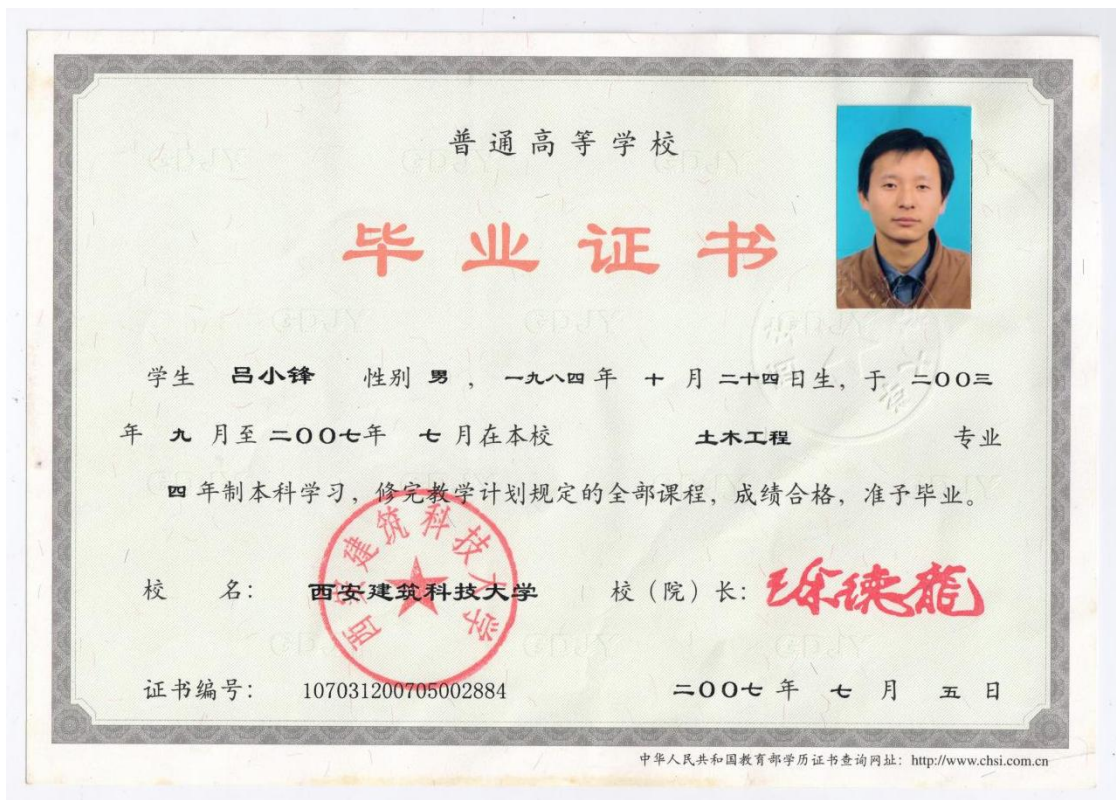 普通高等学校
毕业证书
学生 吕小锋 性别 男 ，一九八四 年 十 月 二十四日生，于 二〇〇三
年 九 月至 二〇〇七年 七 月在本校 土木工程 专业
四 年制本科学习，修完教学计划规定的全部课程，成绩合格，准予毕业。
西安建筑科技大学
校 名： 西安建筑科技大学 校（院）长： 徐德龙
证书编号： 107031200705002884 二〇〇七 年 七 月 五 日
中华人民共和国教育部学历证书查询网址：http://www.chsi.com.cn